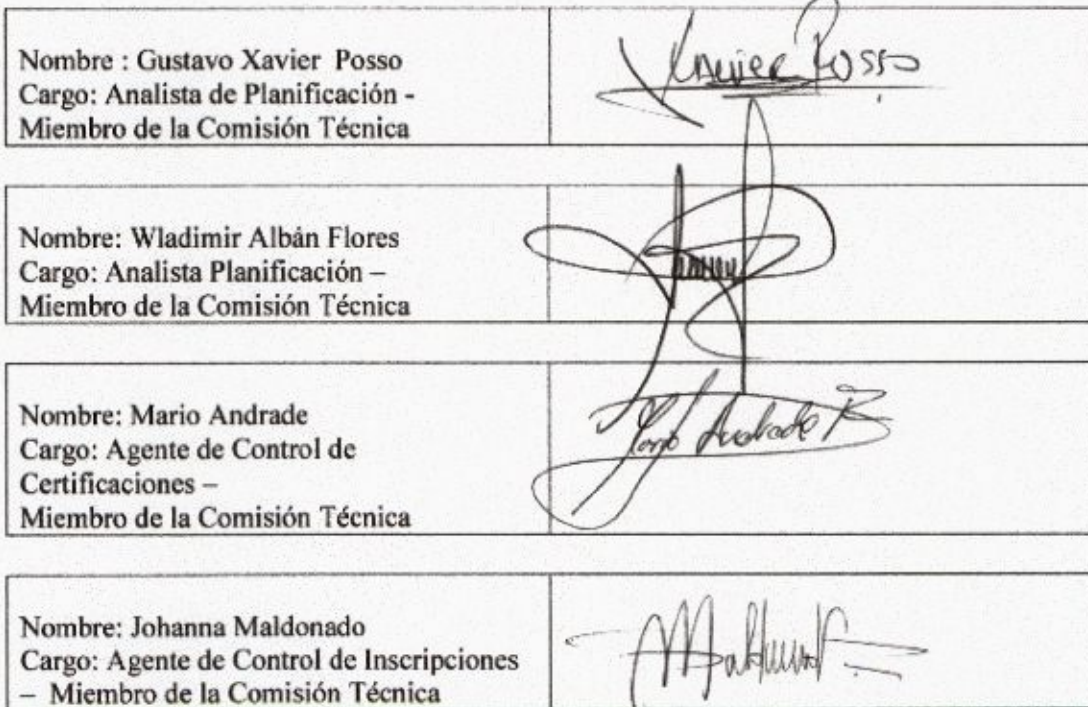 Nombre : Gustavo Xavier Posso
Cargo: Analista de Planificación -
Miembro de la Comisión Técnica
Xavier Posso
Nombre: Wladimir Albán Flores
Cargo: Analista Planificación –
Miembro de la Comisión Técnica
Nombre: Mario Andrade
Cargo: Agente de Control de
Certificaciones –
Miembro de la Comisión Técnica
Andrade
Nombre: Johanna Maldonado
Cargo: Agente de Control de Inscripciones
– Miembro de la Comisión Técnica